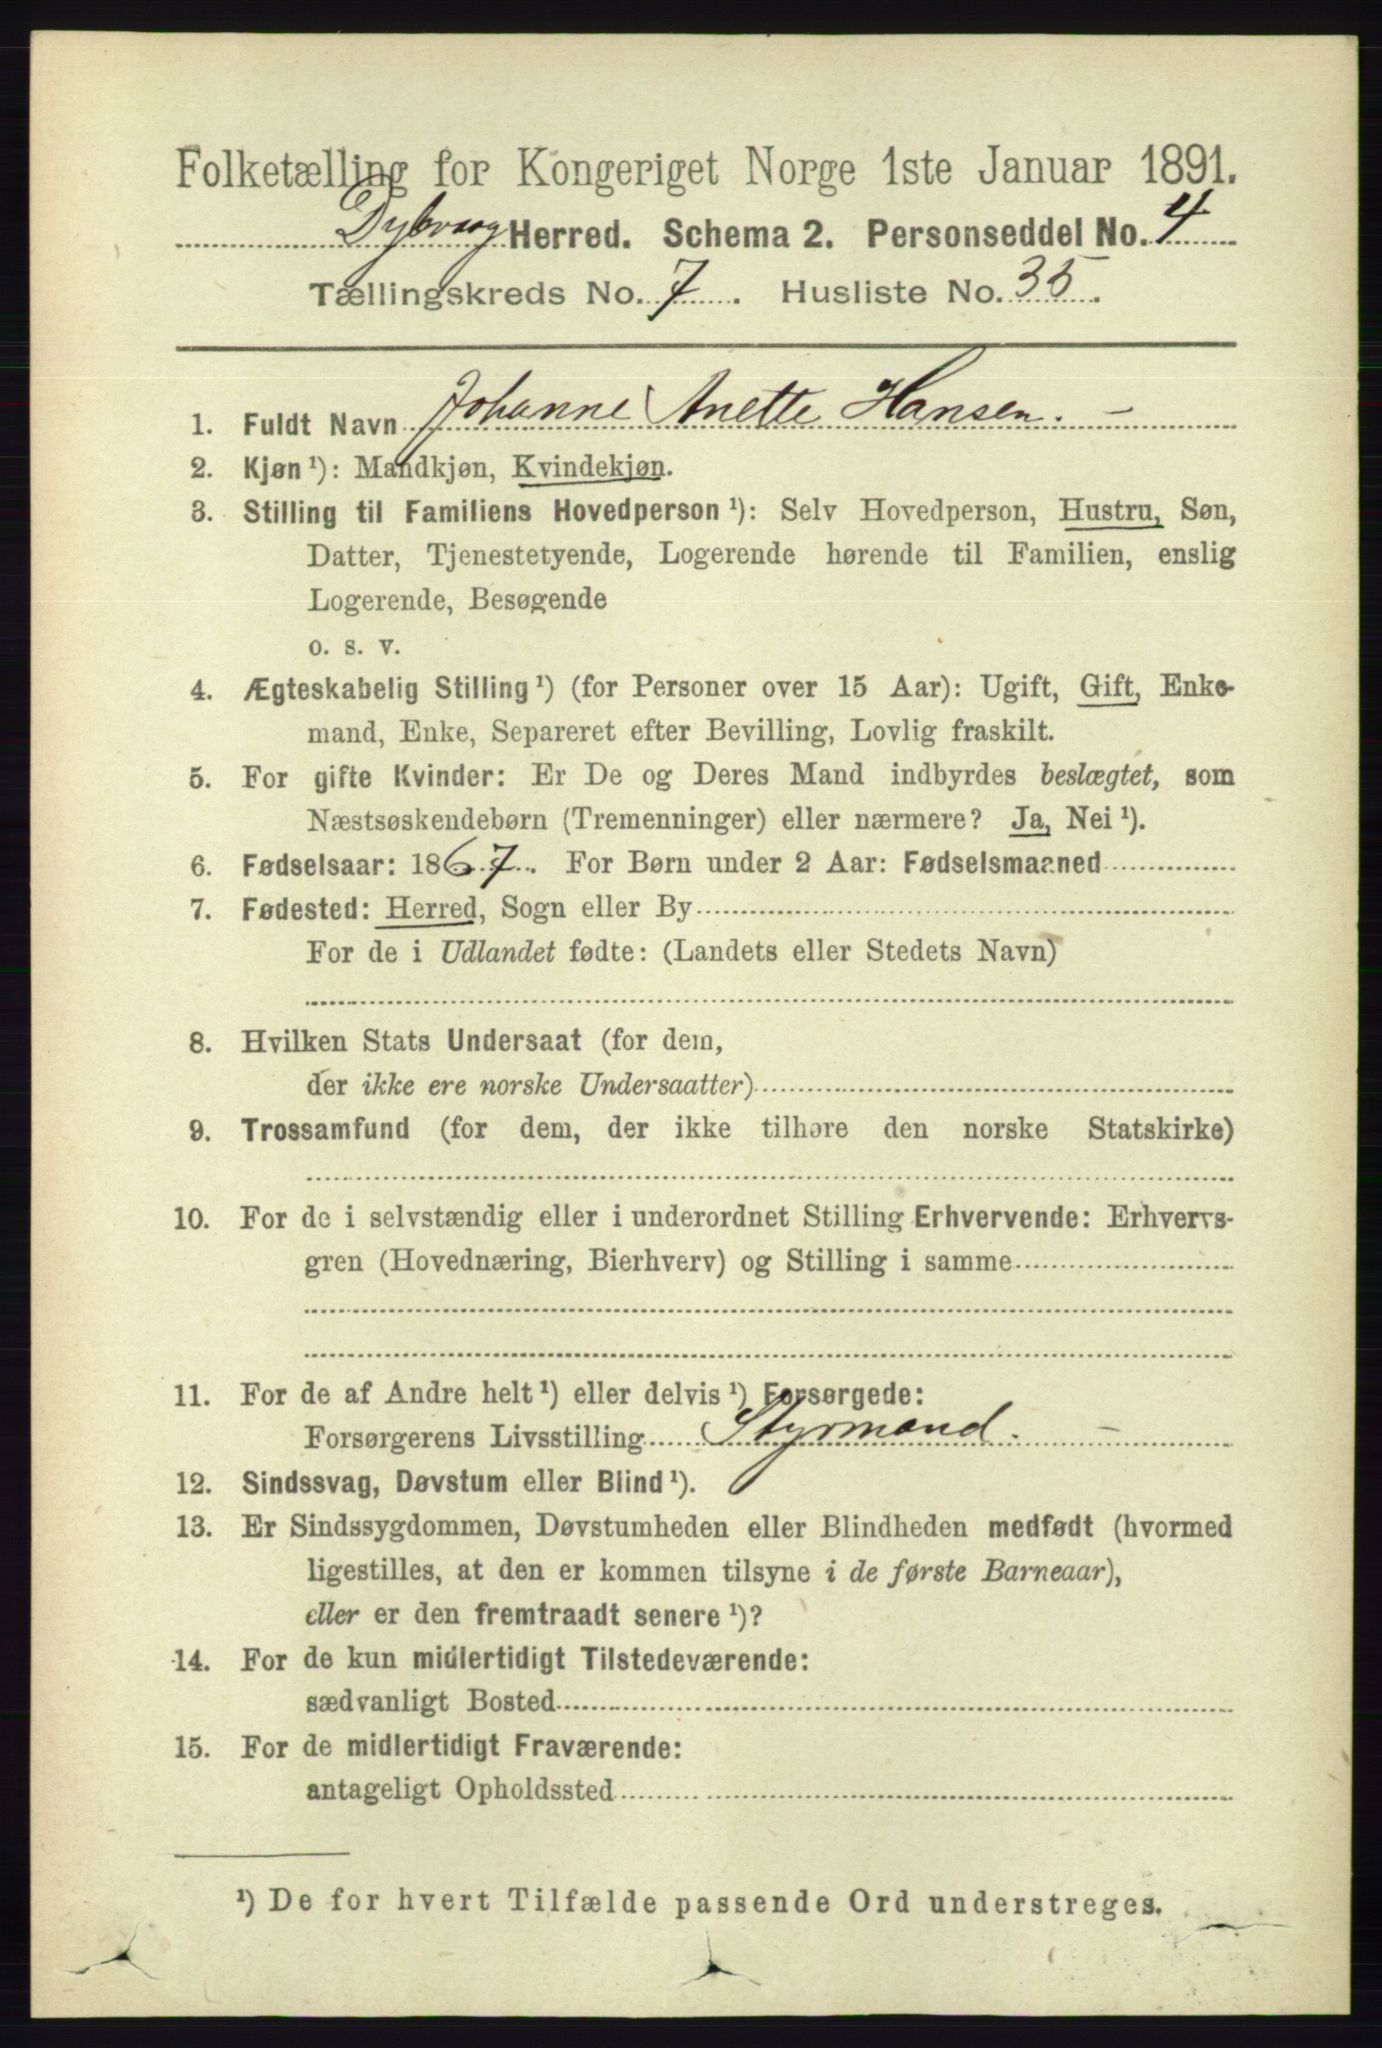 Folketælling for Kongeriget Norge 1ste Januar 1891.
Dybvaag Herred. Schema 2. Personseddel No. 4
Tællingskreds No. 7. Husliste No. 35.
1. Fuldt Navn Johanne Anette Hansen. —
2. Kjøn ¹): Mandkjøn, Kvindekjøn.
3. Stilling til Familiens Hovedperson ¹): Selv Hovedperson, Hustru, Søn,
Datter, Tjenestetyende, Logerende hørende til Familien, enslig
Logerende, Besøgende
o. s. v.
4. Ægteskabelig Stilling ¹) (for Personer over 15 Aar): Ugift, Gift, Enke-
mand, Enke, Separeret efter Bevilling, Lovlig fraskilt.
5. For gifte Kvinder: Er De og Deres Mand indbyrdes beslægtet, som
Næstsøskendebørn (Tremenninger) eller nærmere? Ja, Nei ¹).
6. Fødselsaar: 1867. For Børn under 2 Aar: Fødselsmaaned
7. Fødested: Herred, Sogn eller By
For de i Udlandet fødte: (Landets eller Stedets Navn)
8. Hvilken Stats Undersaat (for dem,
der ikke ere norske Undersaatter)
9. Trossamfund (for dem, der ikke tilhøre den norske Statskirke)
10. For de i selvstændig eller i underordnet Stilling Erhvervende: Erhvervs-
gren (Hovednæring, Bierhverv) og Stilling i samme
11. For de af Andre helt ¹) eller delvis ¹) Forsørgede:
Forsørgerens Livsstilling Styrmand. —
12. Sindssvag, Døvstum eller Blind ¹).
13. Er Sindssygdommen, Døvstumheden eller Blindheden medfødt (hvormed
ligestilles, at den er kommen tilsyne i de første Barneaar),
eller er den fremtraadt senere ¹)?
14. For de kun midlertidigt Tilstedeværende:
sædvanligt Bosted
15. For de midlertidigt Fraværende:
antageligt Opholdssted
¹) De for hvert Tilfælde passende Ord understreges.